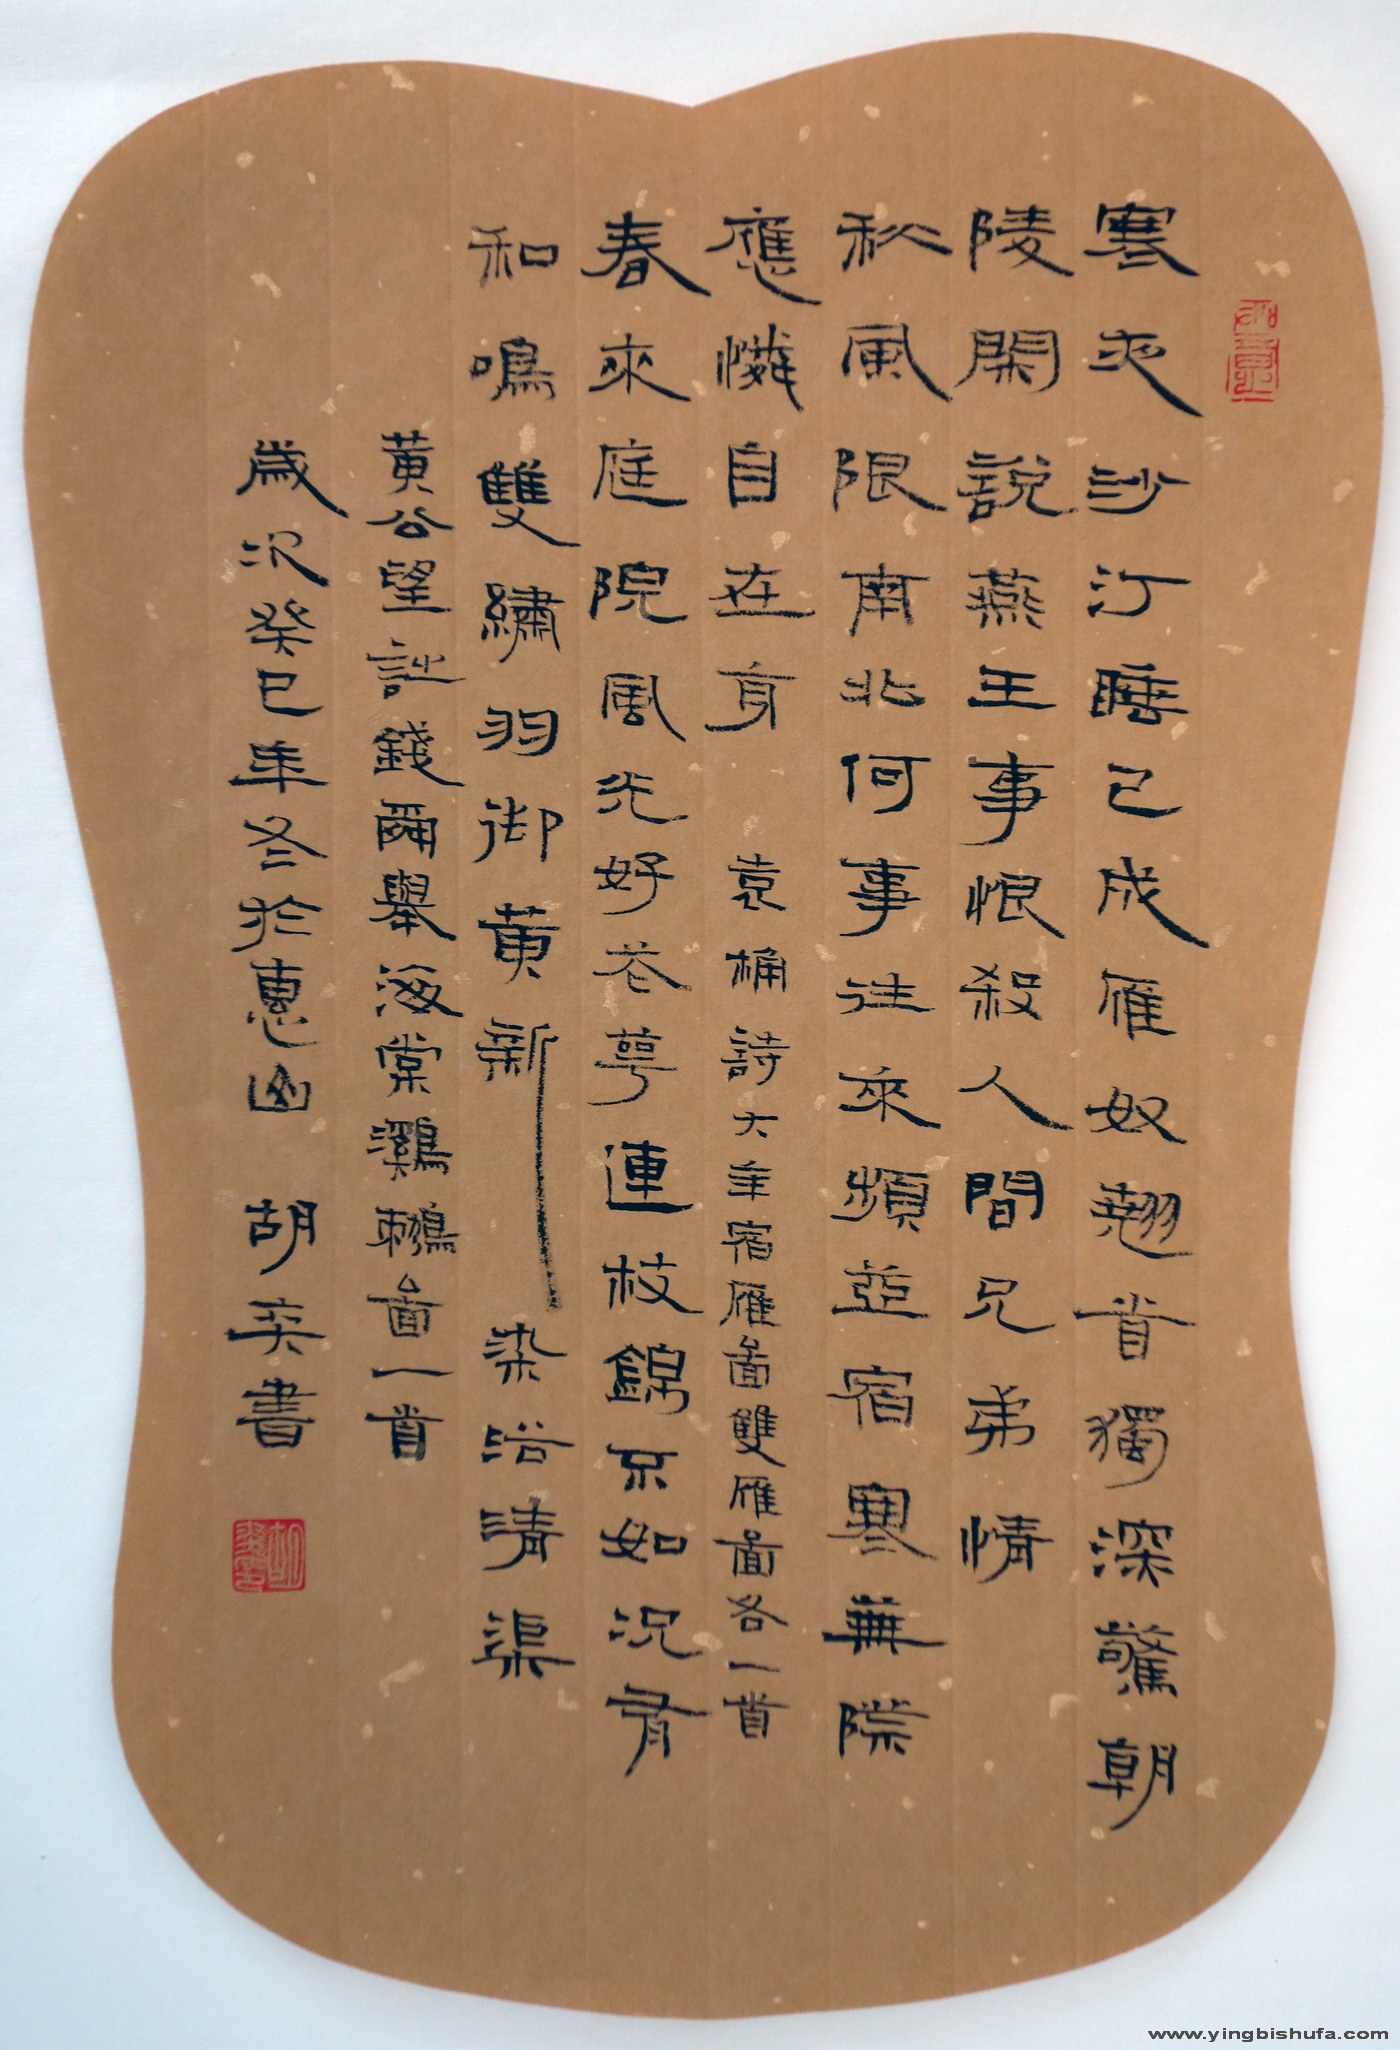 寒夾沙汀睡已成雁奴翹首獨深驚朝
陵閑說燕王事恨殺人間兄弟情
秋風限南北何事往來頻並宿寒蕪際
應憐自在身 袁桷詩大年宿雁圖雙雁圖各一首
春來庭院風光好花萼連枝錦不如況有
和鳴雙繡羽御黃新染浴清渠
黃公望詩錢舜舉海棠鸂鶒圖一首
歲次癸巳年冬於惠山 胡奕書
www.yingbishufa.com